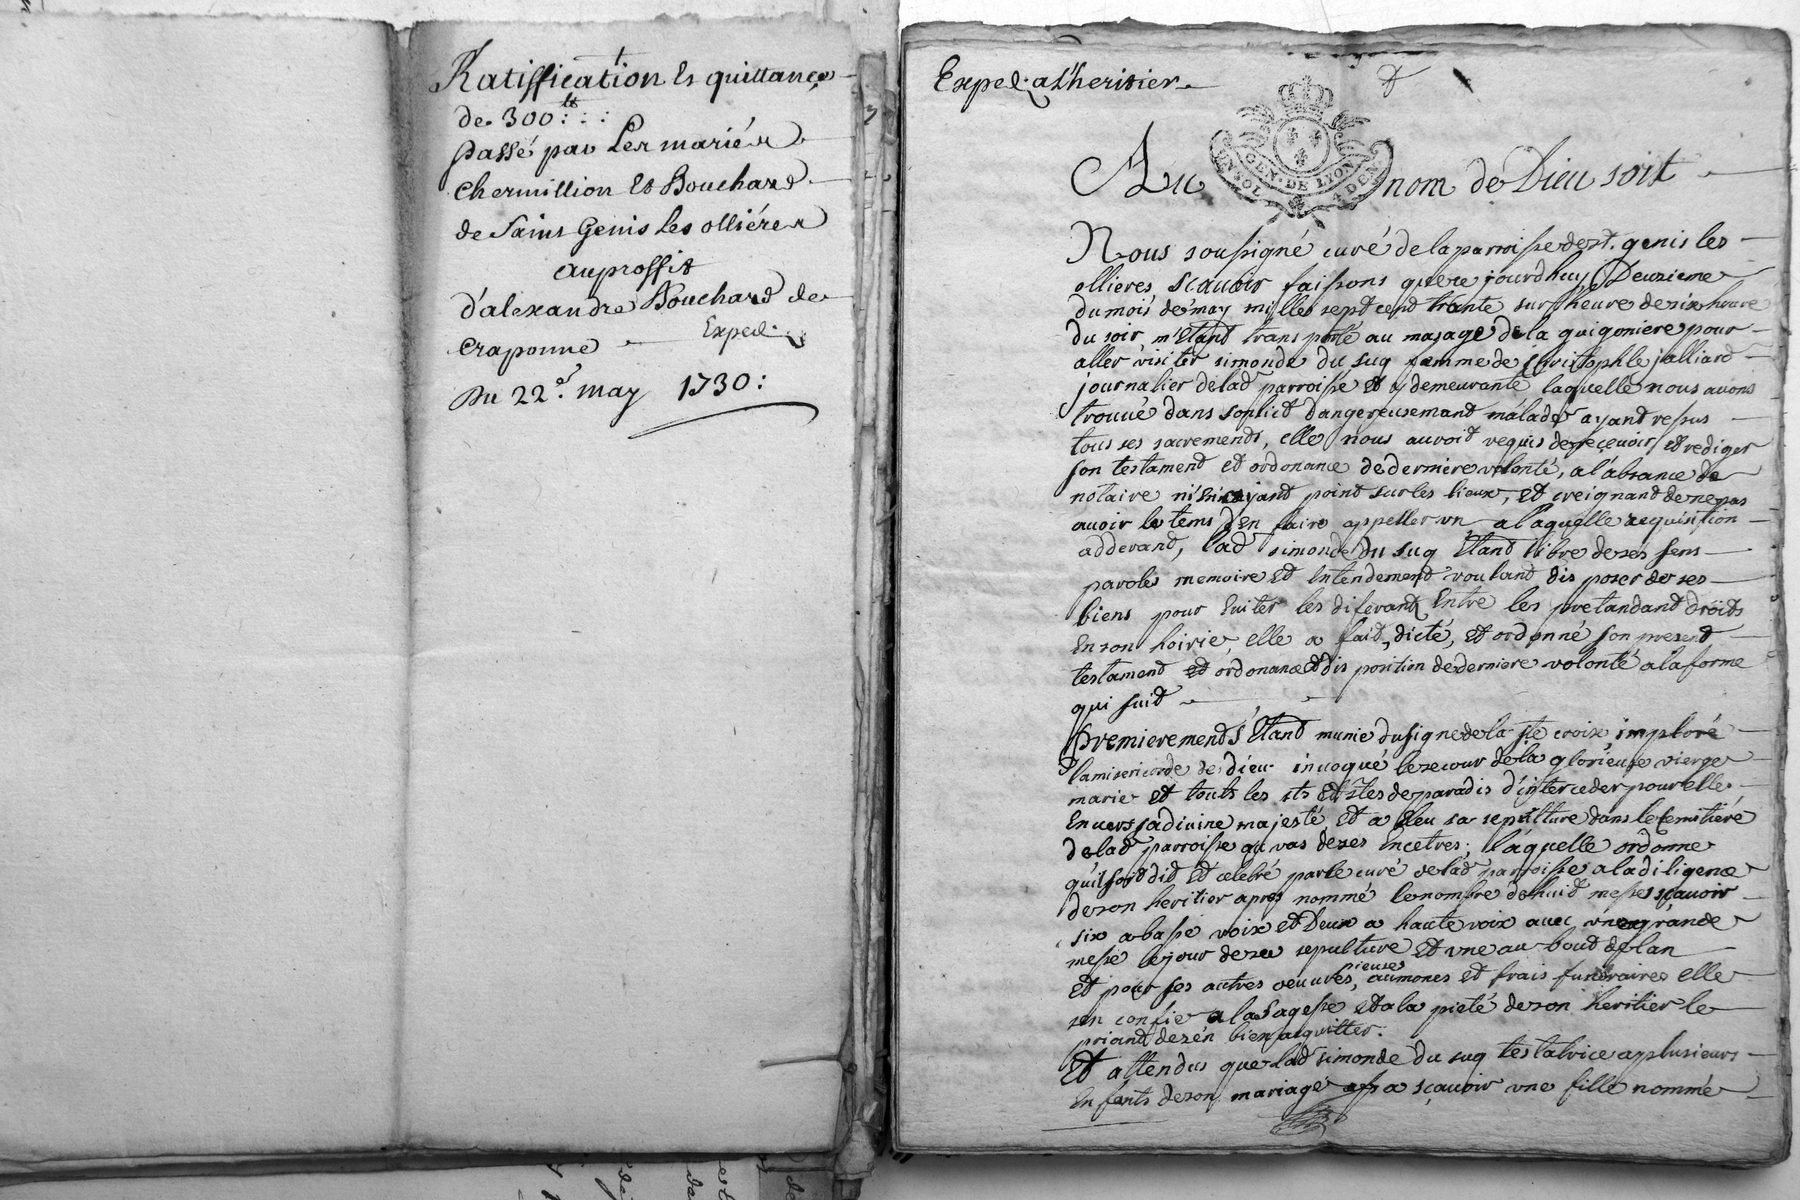 Ratiffication Et quittance
de 300:lt
passé par Les mariés
chermillion Et Bouchard
de Saint Genis Les ollières
auproffit
d'alexandre Bouchard de
craponne
Exped.
Du 22e. may 1730:
Exped. a L'heritier
GEN. DE LYON
UN SOL 4 DEN.
Au nom de Dieu soit
Nous soussigné curé de la parroisse de st. genis les
ollieres scavoir faisons que ce jourdhuy Deuzieme
du mois de may mille sept cend trante sur lheure de six heure
du soir, m'Etand transporté au masage de la guigoniere pour
aller visiter simonde du suq famme de christophle jalliard
journalier de lad parroisse et y demeurante laquelle nous avons
trouvé dans son lict dangereusemand malade ayant resus
tous ses sacrements, elle nous auroit requis de reçevoir et rediger
son testament et ordonance de derniere volonté, a l'absance de
notaire ni en ayant point sur les lieux, et creignand de ne pas
avoir le tems d'en faire appeller un a laquelle requisition
adderand, lad simonde du suq Etand libre de ses sens
parole memoire et entendement voulant disposer de ses
biens pour Eviter les diferants Entre les pretandand droits
en son hoirie, elle a fait, dicté, et ordonné son present
testament et ordonance et disposition de derniere volonté a la forme
qui suit
premierement s'Etand munie du signe de la ste croix imploré
la misericorde de dieu invoqué le secour de la glorieuse vierge
marie et touts les sts et stes de paradis d'interceder pour elle
Envers sa divine majesté et a Eleu sa sepulture dans le cemitiere
de lad parroisse au vas de ses encetres; laquelle ordonne
quil soit dit et celebré par le curé de lad parroisse a la diligence
de son heritier apres nommé le nombre de huit messes scavoir
six a basse voix et Deux a haute voix avec une grande
messe le jour de sa sepulture et une au bout de lan
et pour ses autres oeuvres pieuses, aumones et frais funeraires elle
sen confie a la sagesse et a la pieté de son heritier le
priant de s'en bien aquitter.
Et attendu que lad simonde du suq testatrice a plusieurs
Enfants de son mariage a scavoir une fille nommé